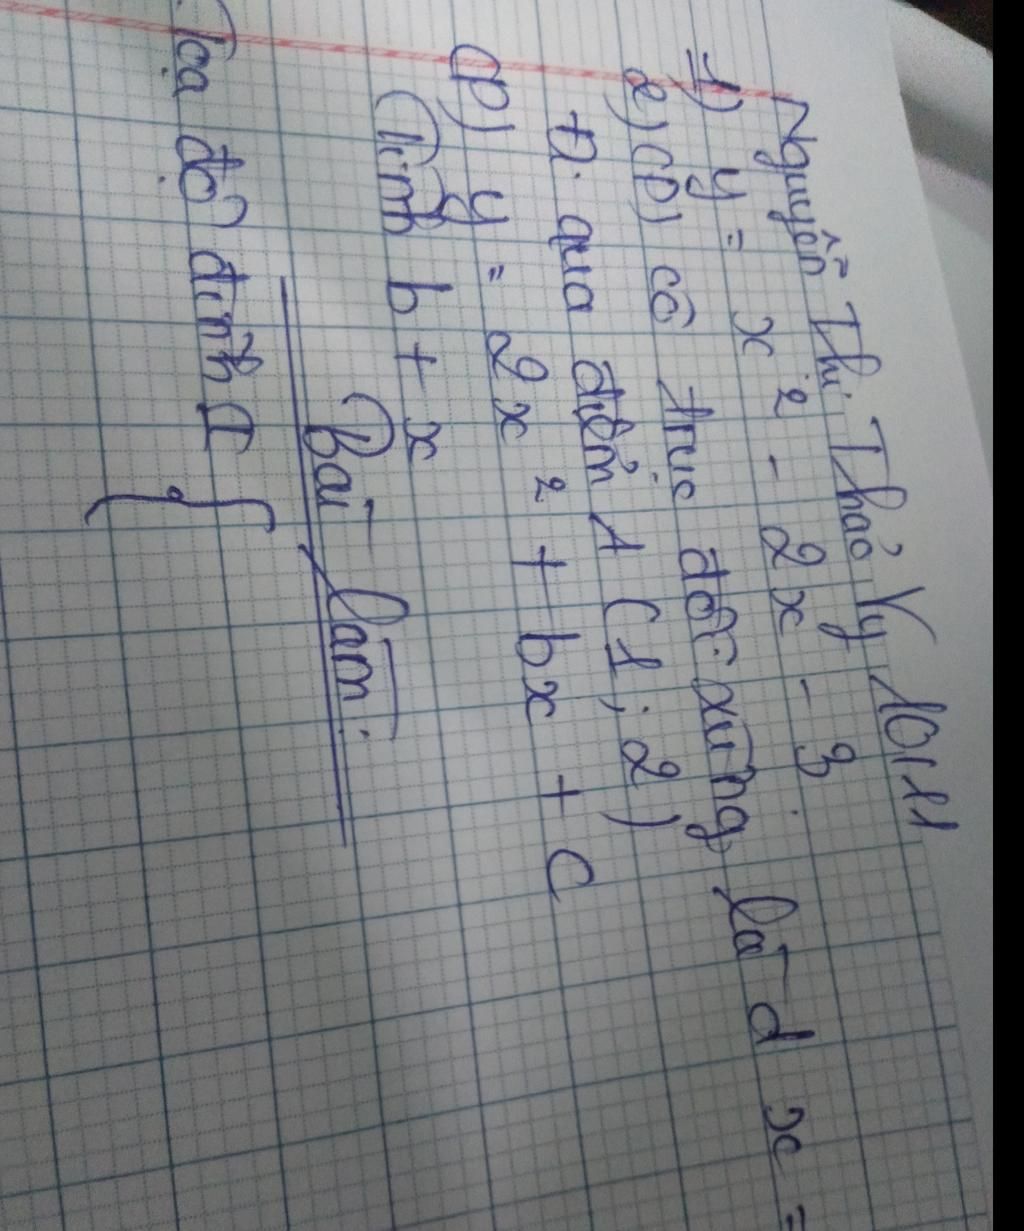 Nguyễn Thị Thảo Vy 10/11
1) y = x² - 2x - 3
2) (P) có trục đối xứng là d x =
Đ. qua điểm A (1; 2)
(P) y = 2x² + bx + C
Tìm b + x
Bài làm:
Tọa độ đỉnh I {